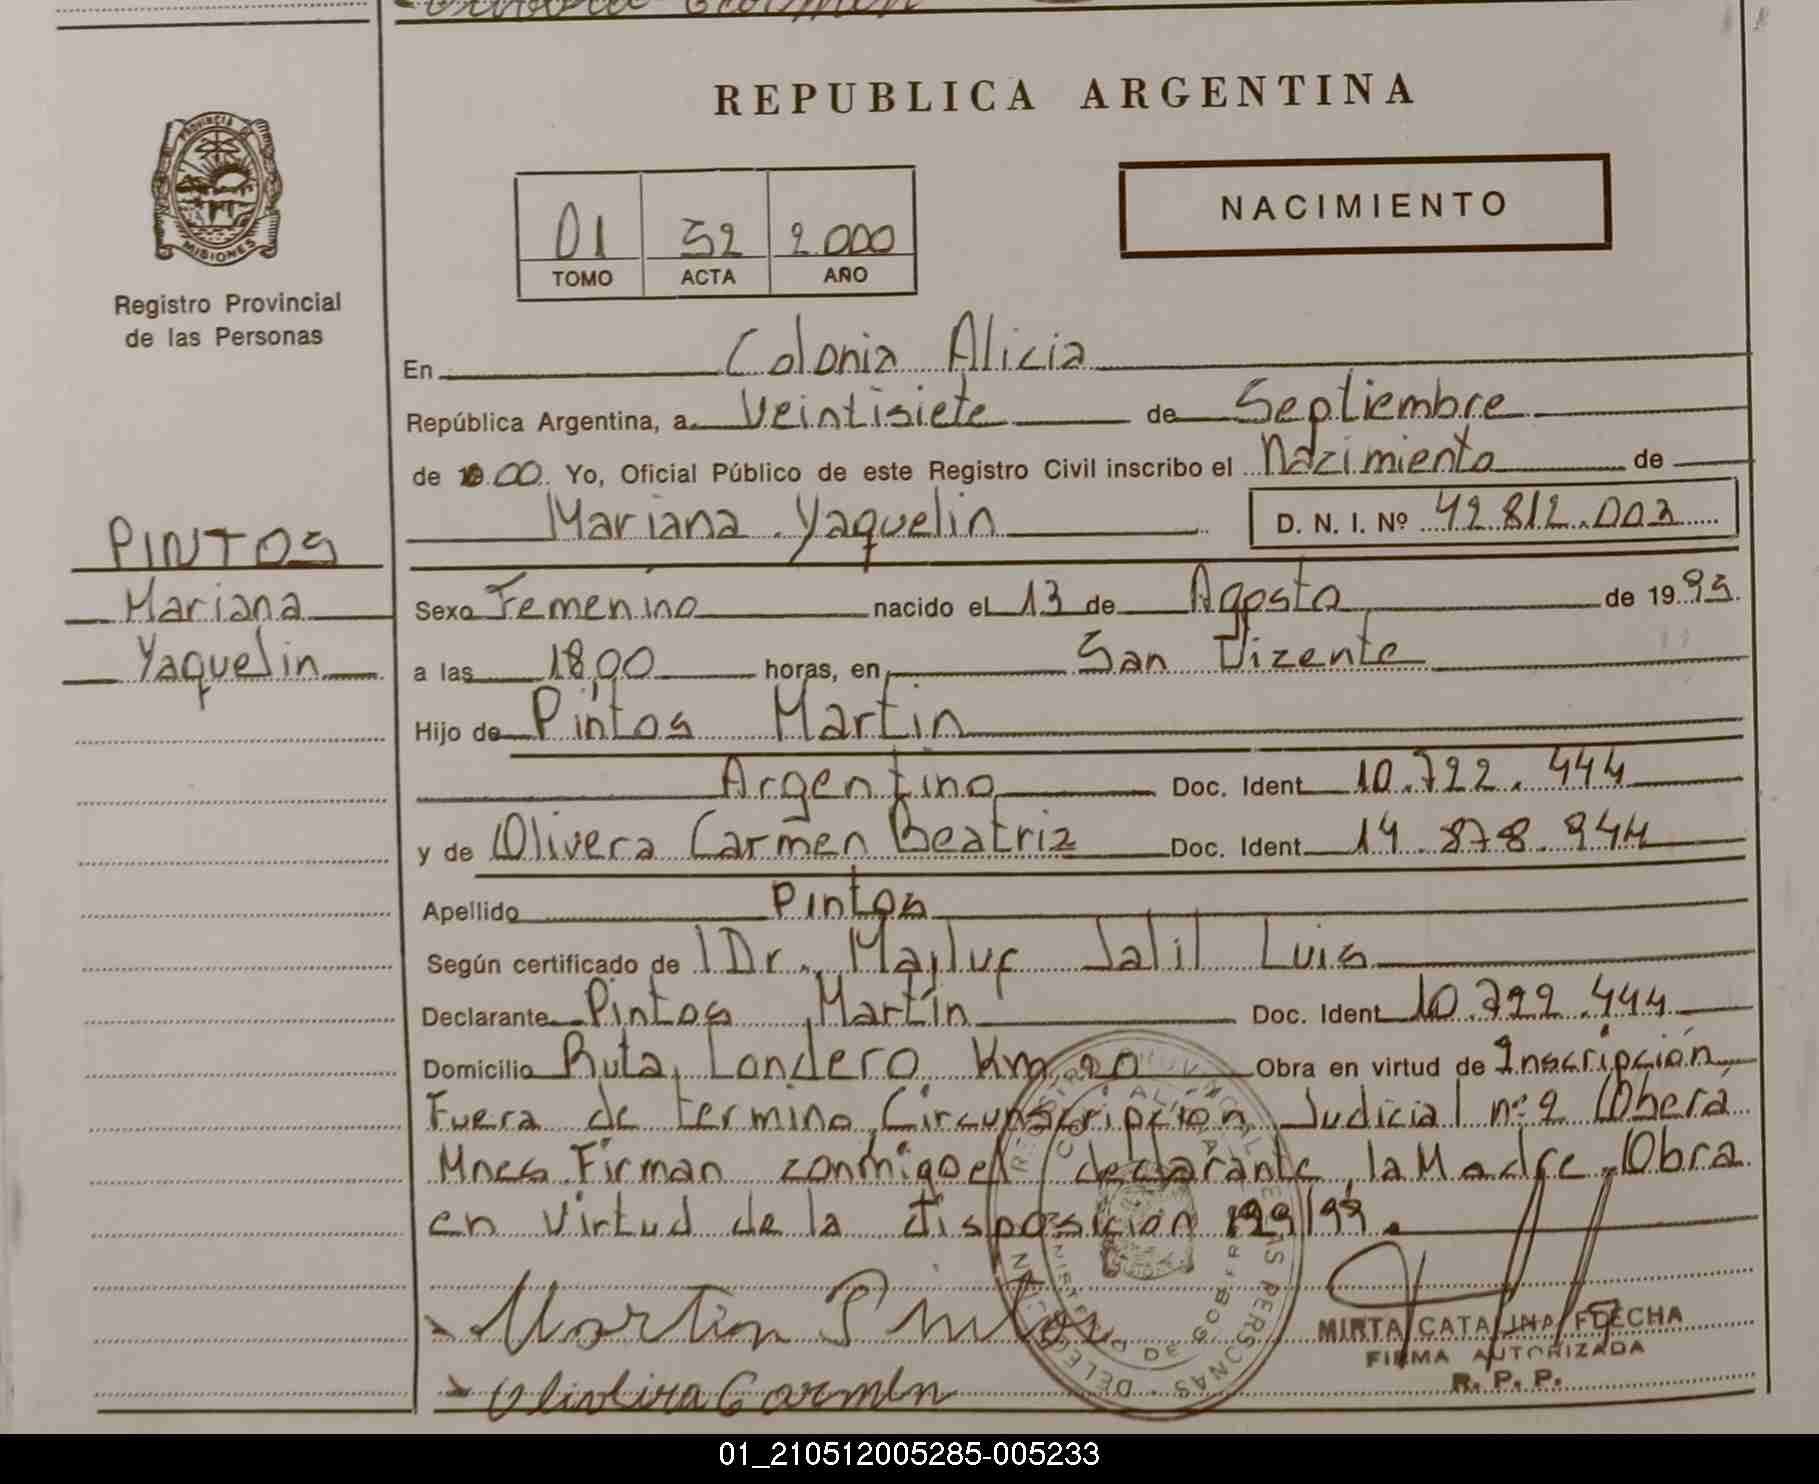 REPUBLICA ARGENTINA
PROVINCIA DE
MISIONES
Registro Provincial
de las Personas
01 52 2.000
TOMO ACTA AÑO
NACIMIENTO
En Colonia Alicia
República Argentina, a Veintisiete de Septiembre
de 00 Yo, Oficial Público de este Registro Civil inscribo el Nacimiento de
Mariana Yaquelin D. N. I. Nº 42.812.002
PINTOS
Mariana
Yaquelin
Sexo Femenino nacido el 13 de Agosto de 1995
a las 18,00 horas, en San Vizente
Hijo de Pintos Martin
Argentino Doc. Ident 10.722.444
y de Olivera Carmen Beatriz Doc. Ident 14.878.944
Apellido Pintos
Según certificado de Dr. Majluf Jalil Luis
Declarante Pintos Martín Doc. Ident 10.722.444
Domicilio Ruta Londero Km 20 Obra en virtud de Inscripción
Fuera de termino Circunscripción Judicial nº 2 Oberá
Mnes Firman conmigo el declarante la Madre. Obra
en virtud de la disposición 199/99.
Martin Pintos
MIRTA CATALINA FLECHA
FIRMA AUTORIZADA
R. P. P.
Oliveira Carmen
01_210512005285-005233